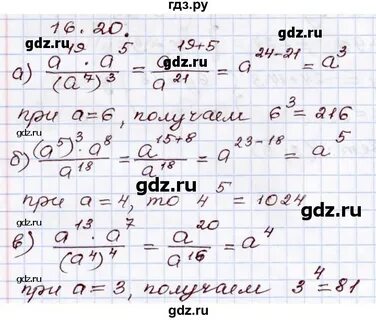 гдз.ру
16.20.
а) (a^19 · a^5)/(a^7)^3 = a^(19+5)/a^21 = a^(24-21) = a^3
при a=6, получаем 6^3 = 216
б) ((a^5)^3 · a^8)/a^18 = a^(15+8)/a^18 = a^(23-18) = a^5
при a=4, то 4^5 = 1024
в) (a^13 · a^7)/(a^4)^4 = a^20/a^16 = a^4
при a=3, получаем 3^4 = 81
gdz.ru
gdz.ru
gdz.ru
gdz.ru
gdz.ru
gdz.ru
gdz.ru
gdz.ru